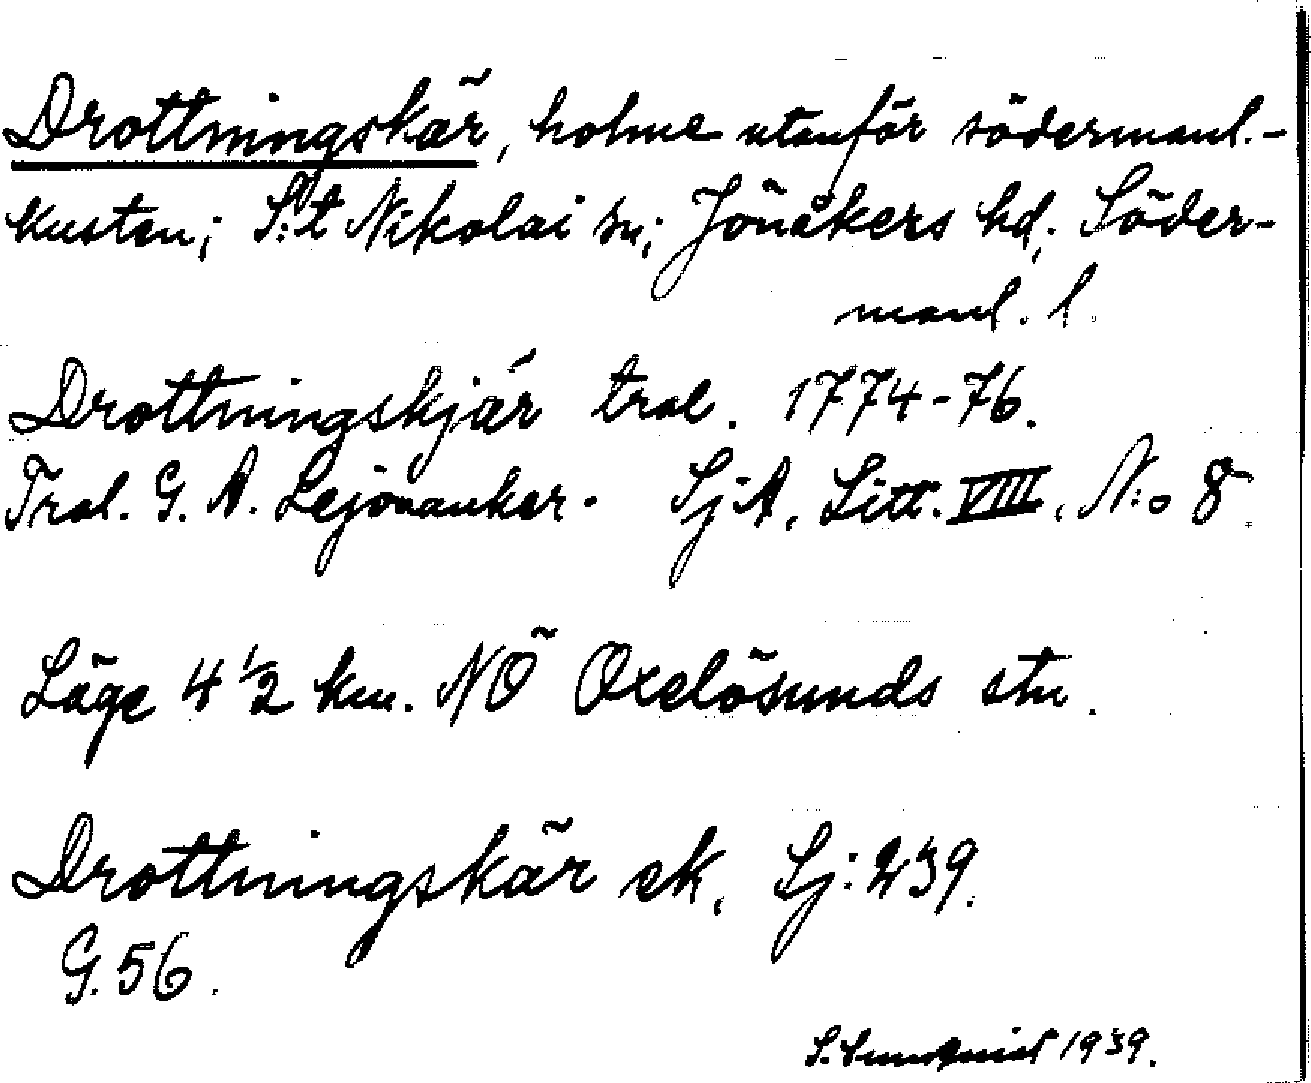 Drottningskär, holme utanför södermanl.-
kusten; S:t Nikolai sn; Jönåkers hd; Söder-
manl. l.
Drottningskjär trol. 1774-76.
Trol. G. A. Lejonanker. Sj:A, Litt. VIII, N:o 8.
Läge 4 1/2 km. NÖ Oxelösunds stn.
Drottningskär ek. Sj: 239.
G. 56.
S. Sundquist 1939.